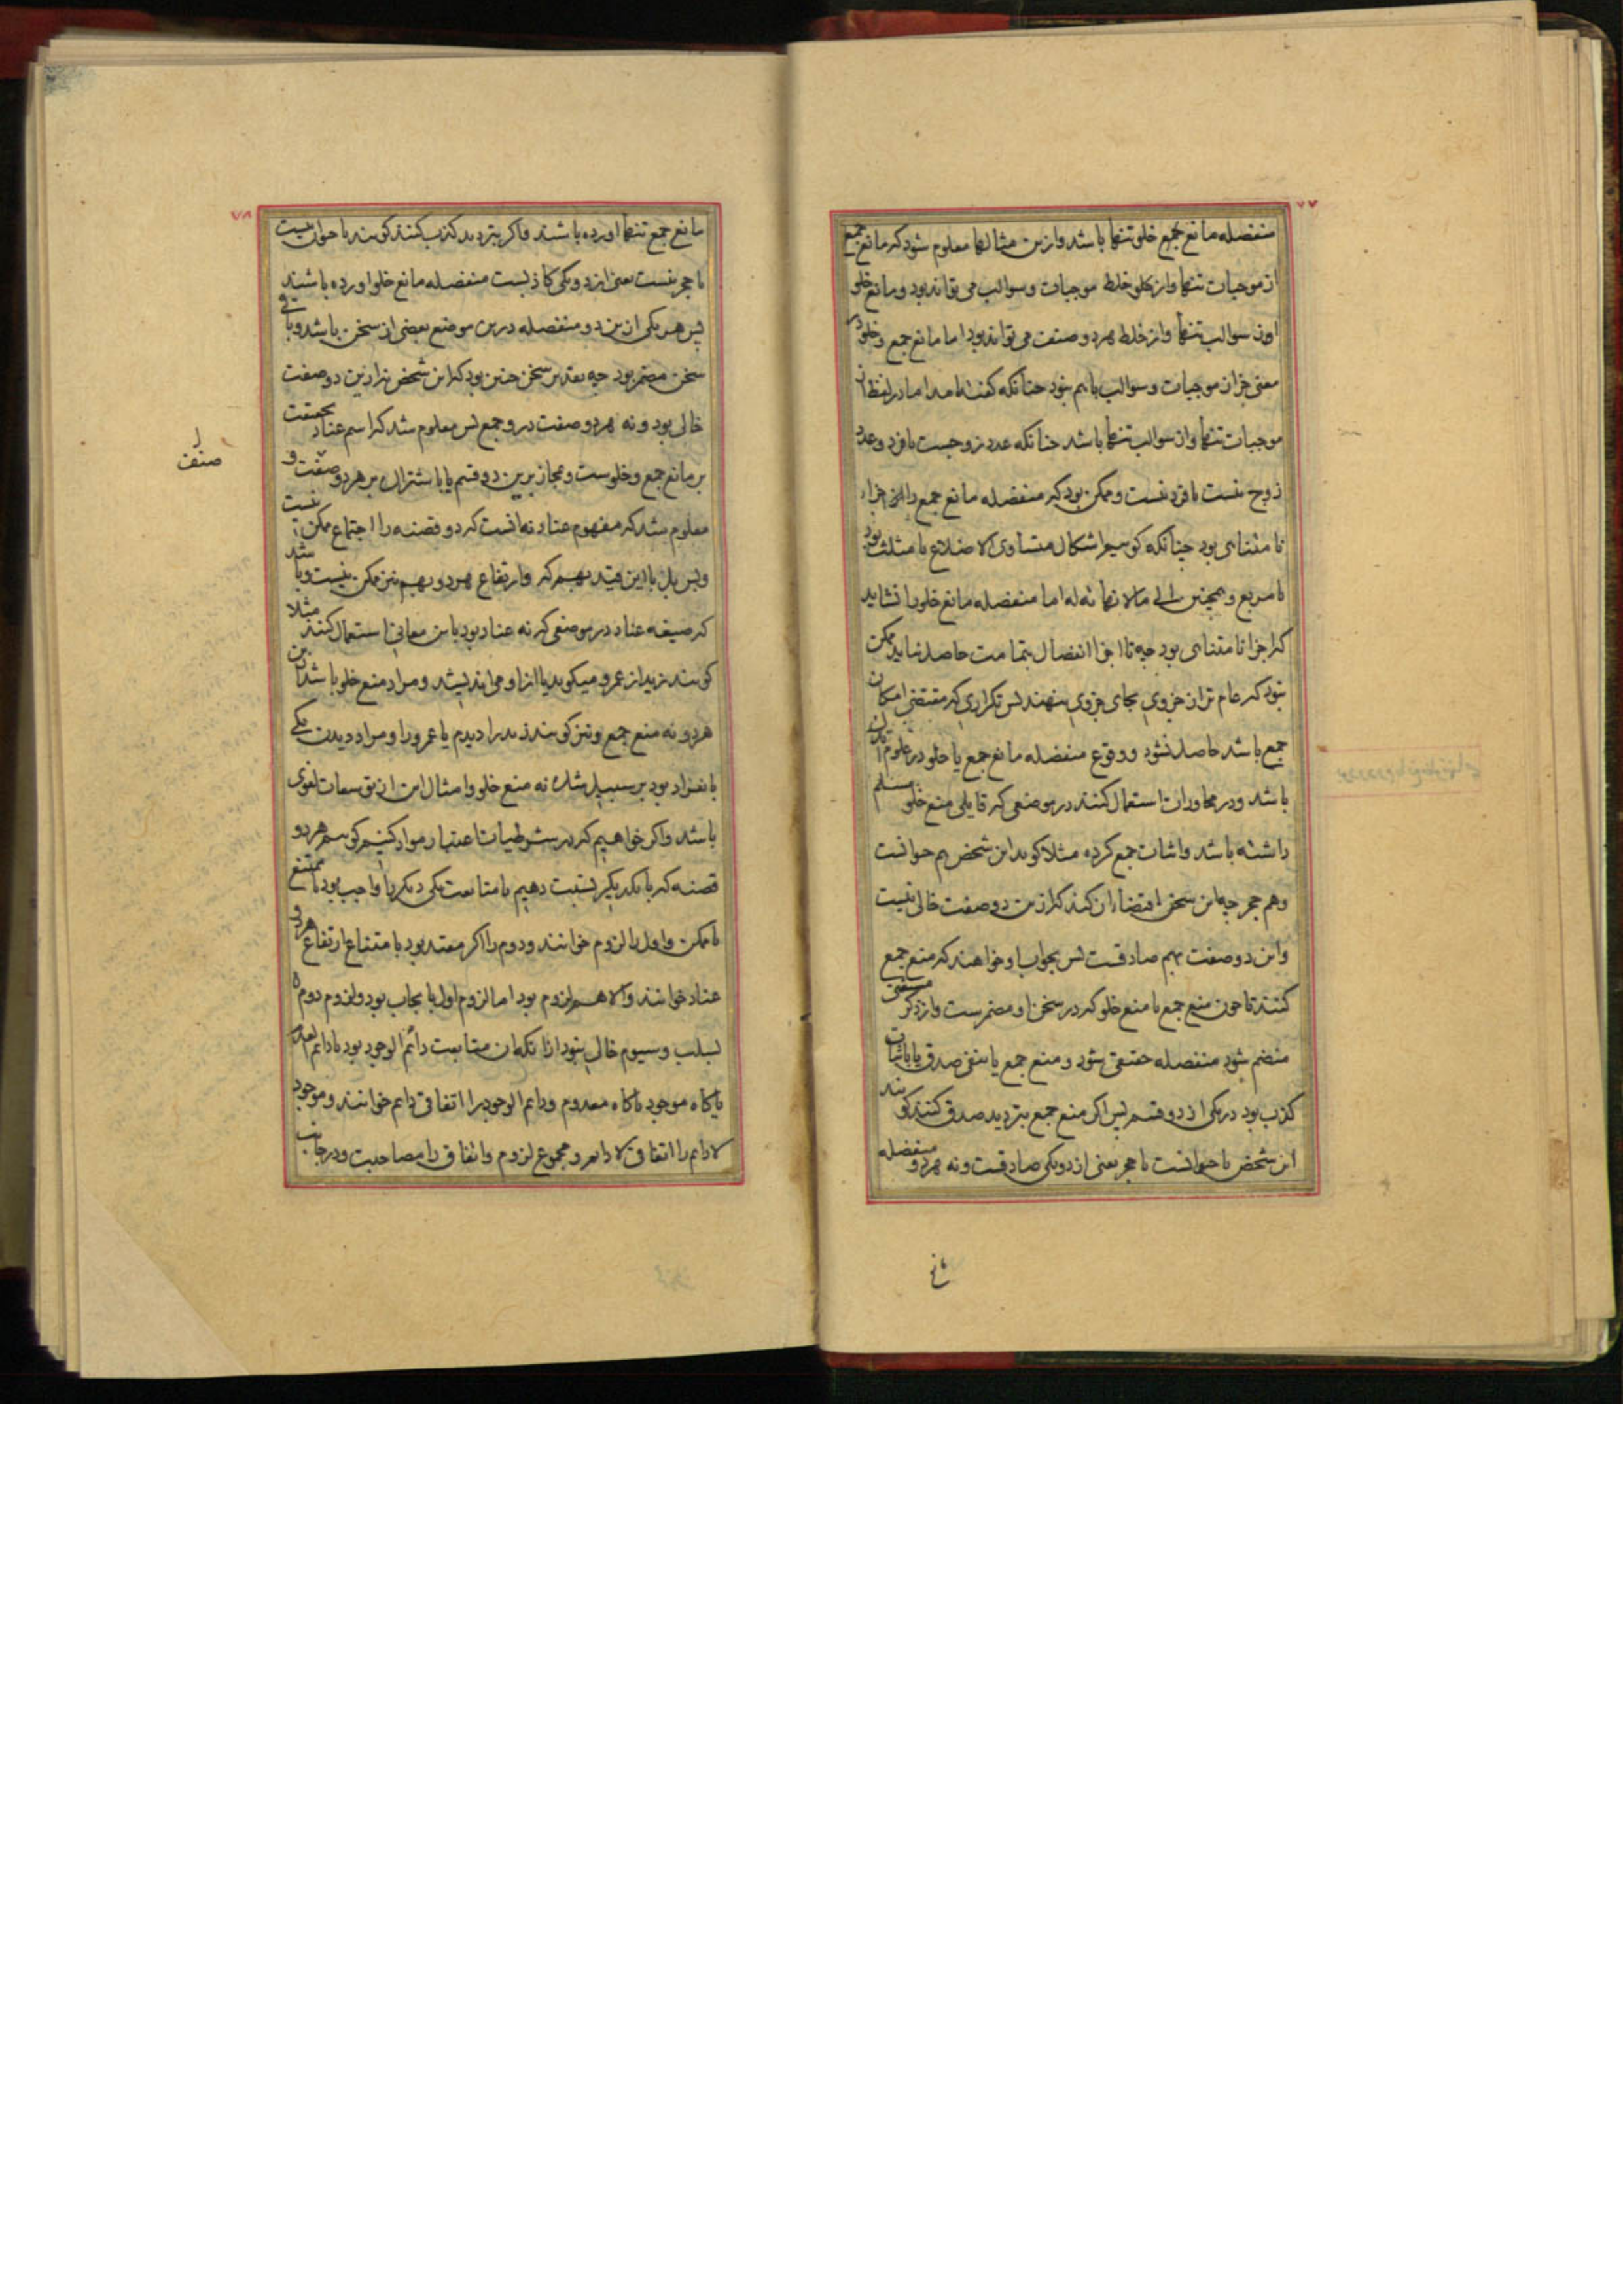 ۷۷
منفصله مانع جمع خلو تنها باشد وازین مثالها معلوم شود که مانع جمع
از موجبات تنها واز خلط موجبات وسوالب می تواند بود ومانع خلو
از سوالب تنها واز خلط هردو صنف می تواند بود اما مانع جمع وخلو در
معنی جز از موجبات وسوالب باهم نبود چنانکه گفته اما در لفظ از
موجبات تنها واز سوالب تنها باشد چنانکه عدد زوجست یا فرد وعدد
زوج نیست یا فرد نیست وممکن بود که منفصله مانع جمع را اجزاء
نا متناهی بود چنانکه گوییم اشکال متساوی الاضلاع یا مثلث بود
یا مربع وهمچنین الی مالا نهایة له اما منفصله مانع خلو را نشاید
که اجزا نا متناهی بود چه تا اجزا انفصال بتمامت حاصل نیاید ممکن
نبود که عام تر از جزوی بجای جزوی بنهند پس تکراری که مقتضی امکان
جمع باشد حاصل نشود ووقوع منفصله مانع جمع یا خلو در علوم
باشد ودر محاورات استعمال کنند در موضعی که قایلی منع خلو مسلم
داشته باشد واثبات جمع کرده مثلا گوید این شخص هم حیوانست
وهم حجر چه این سخن اقتضاء ان کند که ازین دو صفت خالی نیست
واین دو صفت بهم صادقست پس بجواب او خواهند که منع جمع
کنند تا چون منع جمع با منع خلو که در سخن او مضمرست واز ذکر مستغنی
منضم شود منفصله حقیقی شود ومنع جمع یا بنفی صدق یا باثبات
کذب بود در یکی از دو قسم پس اگر منع جمع بتردید صدق کنند گویند
این شخص یا حیوانست یا حجر یعنی از دو یکی صادقست ونه هردو منفصله
مانع
۷۸
مانع جمع تنها اورده باشند واگر بتردید کذب کنند گویند یا حیوان نیست
یا حجر نیست یعنی از دو یکی کاذبست منفصله مانع خلو اورده باشند
پس هر یکی ازین دو منفصله درین موضع بعضی از سخن باشد وباقی
سخن مضمر بود چه تقدیر سخن چنین بود که این شخص نه ازین دو صفت
خالی بود ونه هردو صفت درو جمع پس معلوم شد که اسم عناد بحقیقت
بر مانع جمع وخلوست ومجاز برین دو قسم یا باشتراک بر هردو صفت و
معلوم شد که مفهوم عناد نه انست که دو قضیه را اجتماع ممکن نیست
وبس بل با این قید بهم که وارتفاع هردو بهم نیز ممکن نیست وباشد
که صیغه عناد در موضعی که نه عناد بود باین معانی استعمال کنند مثلا
گویند زید از عمرو میگوید یا ازو می اندیشد ومراد منع خلو باشد ازین
هردو نه منع جمع ونیز گویند زید را دیدم یا عمرو را ومراد دیدن یکی
بانفراد بود بر سبیل شک نه منع خلو وامثال این از توسعات لغوی
باشد واگر خواهیم که در شرطیات اعتبار مواد کنیم گوییم هردو
قضیه که با یکدیگر نسبت دهیم یا متابعت یکی دیگر را واجب بود یا ممتنع
یا ممکن واول را لزوم خوانند ودوم را اگر مقید بود بامتناع ارتفاع هردو
عناد خوانند والا هم لزوم بود اما لزوم اول بایجاب بود ولزوم دوم
بسلب وسیوم خالی نبود ازانکه ان متابعت دائم الوجود بود یا دائم العدم
یا گاه موجود یا گاه معدوم ودایم الوجود را اتفاق دایم خوانند وموجود
لادایم را اتفاق لادایم ومجموع لزوم واتفاق را مصاحبت ودر جانب
صنف